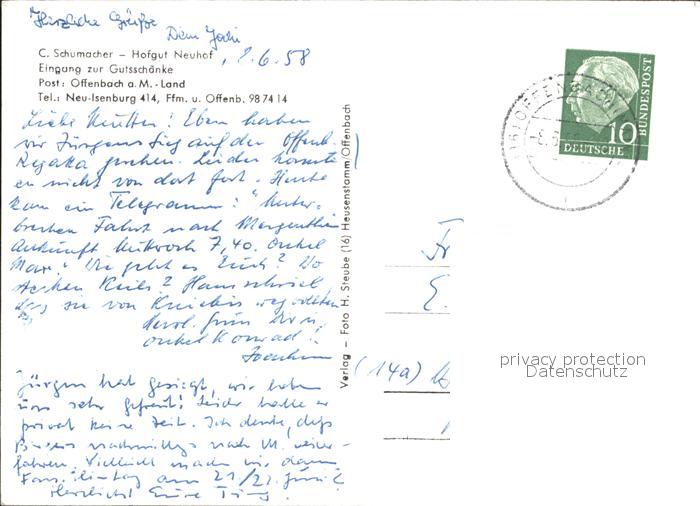 Herzliche Grüße
Dein Jochi
C. Schumacher – Hofgut Neuhof, 8.6.58
Eingang zur Gutsschänke
Post: Offenbach a. M. - Land
Tel.: Neu-Isenburg 414, Ffm. u. Offenb. 987414
Liebe Mutter! Eben haben
wir Jürgens Sieg auf der Offenb.
Regatta gesehen. Leider konnte
er nicht von dort fort. Heute
kam ein Telegramm: "Unter-
brechen Fahrt nach Mergentheim
Ankunft Mittwoch 7,40. Onkel
Max." Wie geht es Euch? Wo
stecken Keils? Hans schrieb
daß sie von Kniebis weg wollten
Herzl.
Onkel Konrad
Joachim
Jürgen hat gesiegt, wir haben
uns sehr gefreut! Leider hatte er
privat keine Zeit. Ich denke, daß
nachmittags nach M. weiter-
fahren. Vielleicht
am 21/22. Juni?
Herzlichst Eure
Verlag – Foto H. Steube (16) Heusenstamm/Offenbach
(16) OFFENBACH
10
DEUTSCHE
BUNDESPOST
Fr
E.
(14a)
privacy protection
Datenschutz